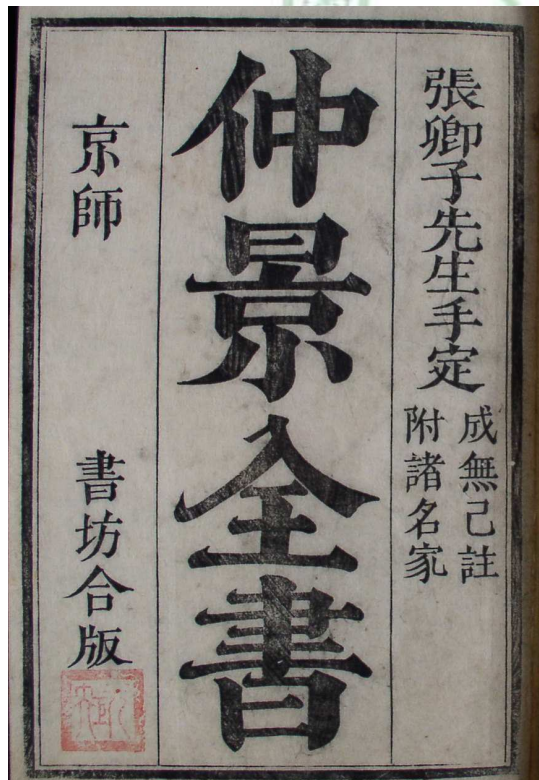 張卿子先生手定
成無己註
附諸名家
仲景全書
京師
書坊合版